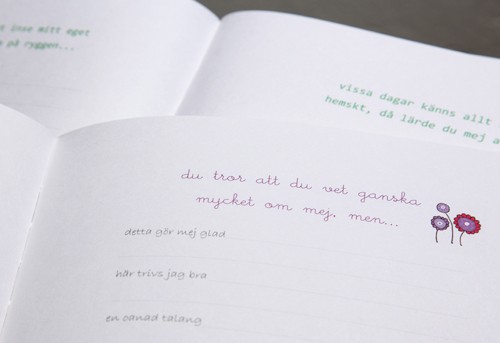 t inse mitt eget
på ryggen...
vissa dagar känns allt
hemskt, då lärde du mej a
du tror att du vet ganska
mycket om mej, men...
detta gör mej glad
här trivs jag bra
en oanad talang